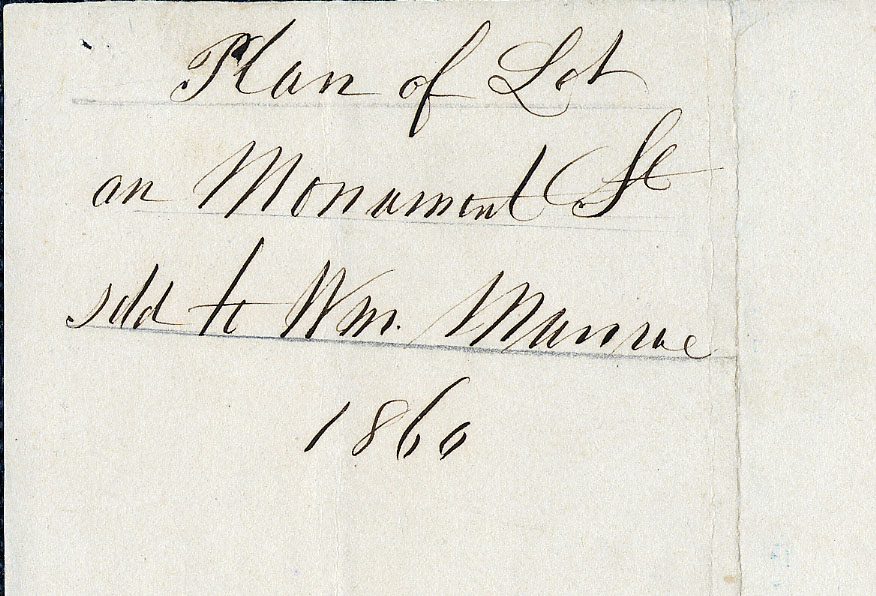 Plan of Lot
on Monument St
sold to Wm. Munroe
1860